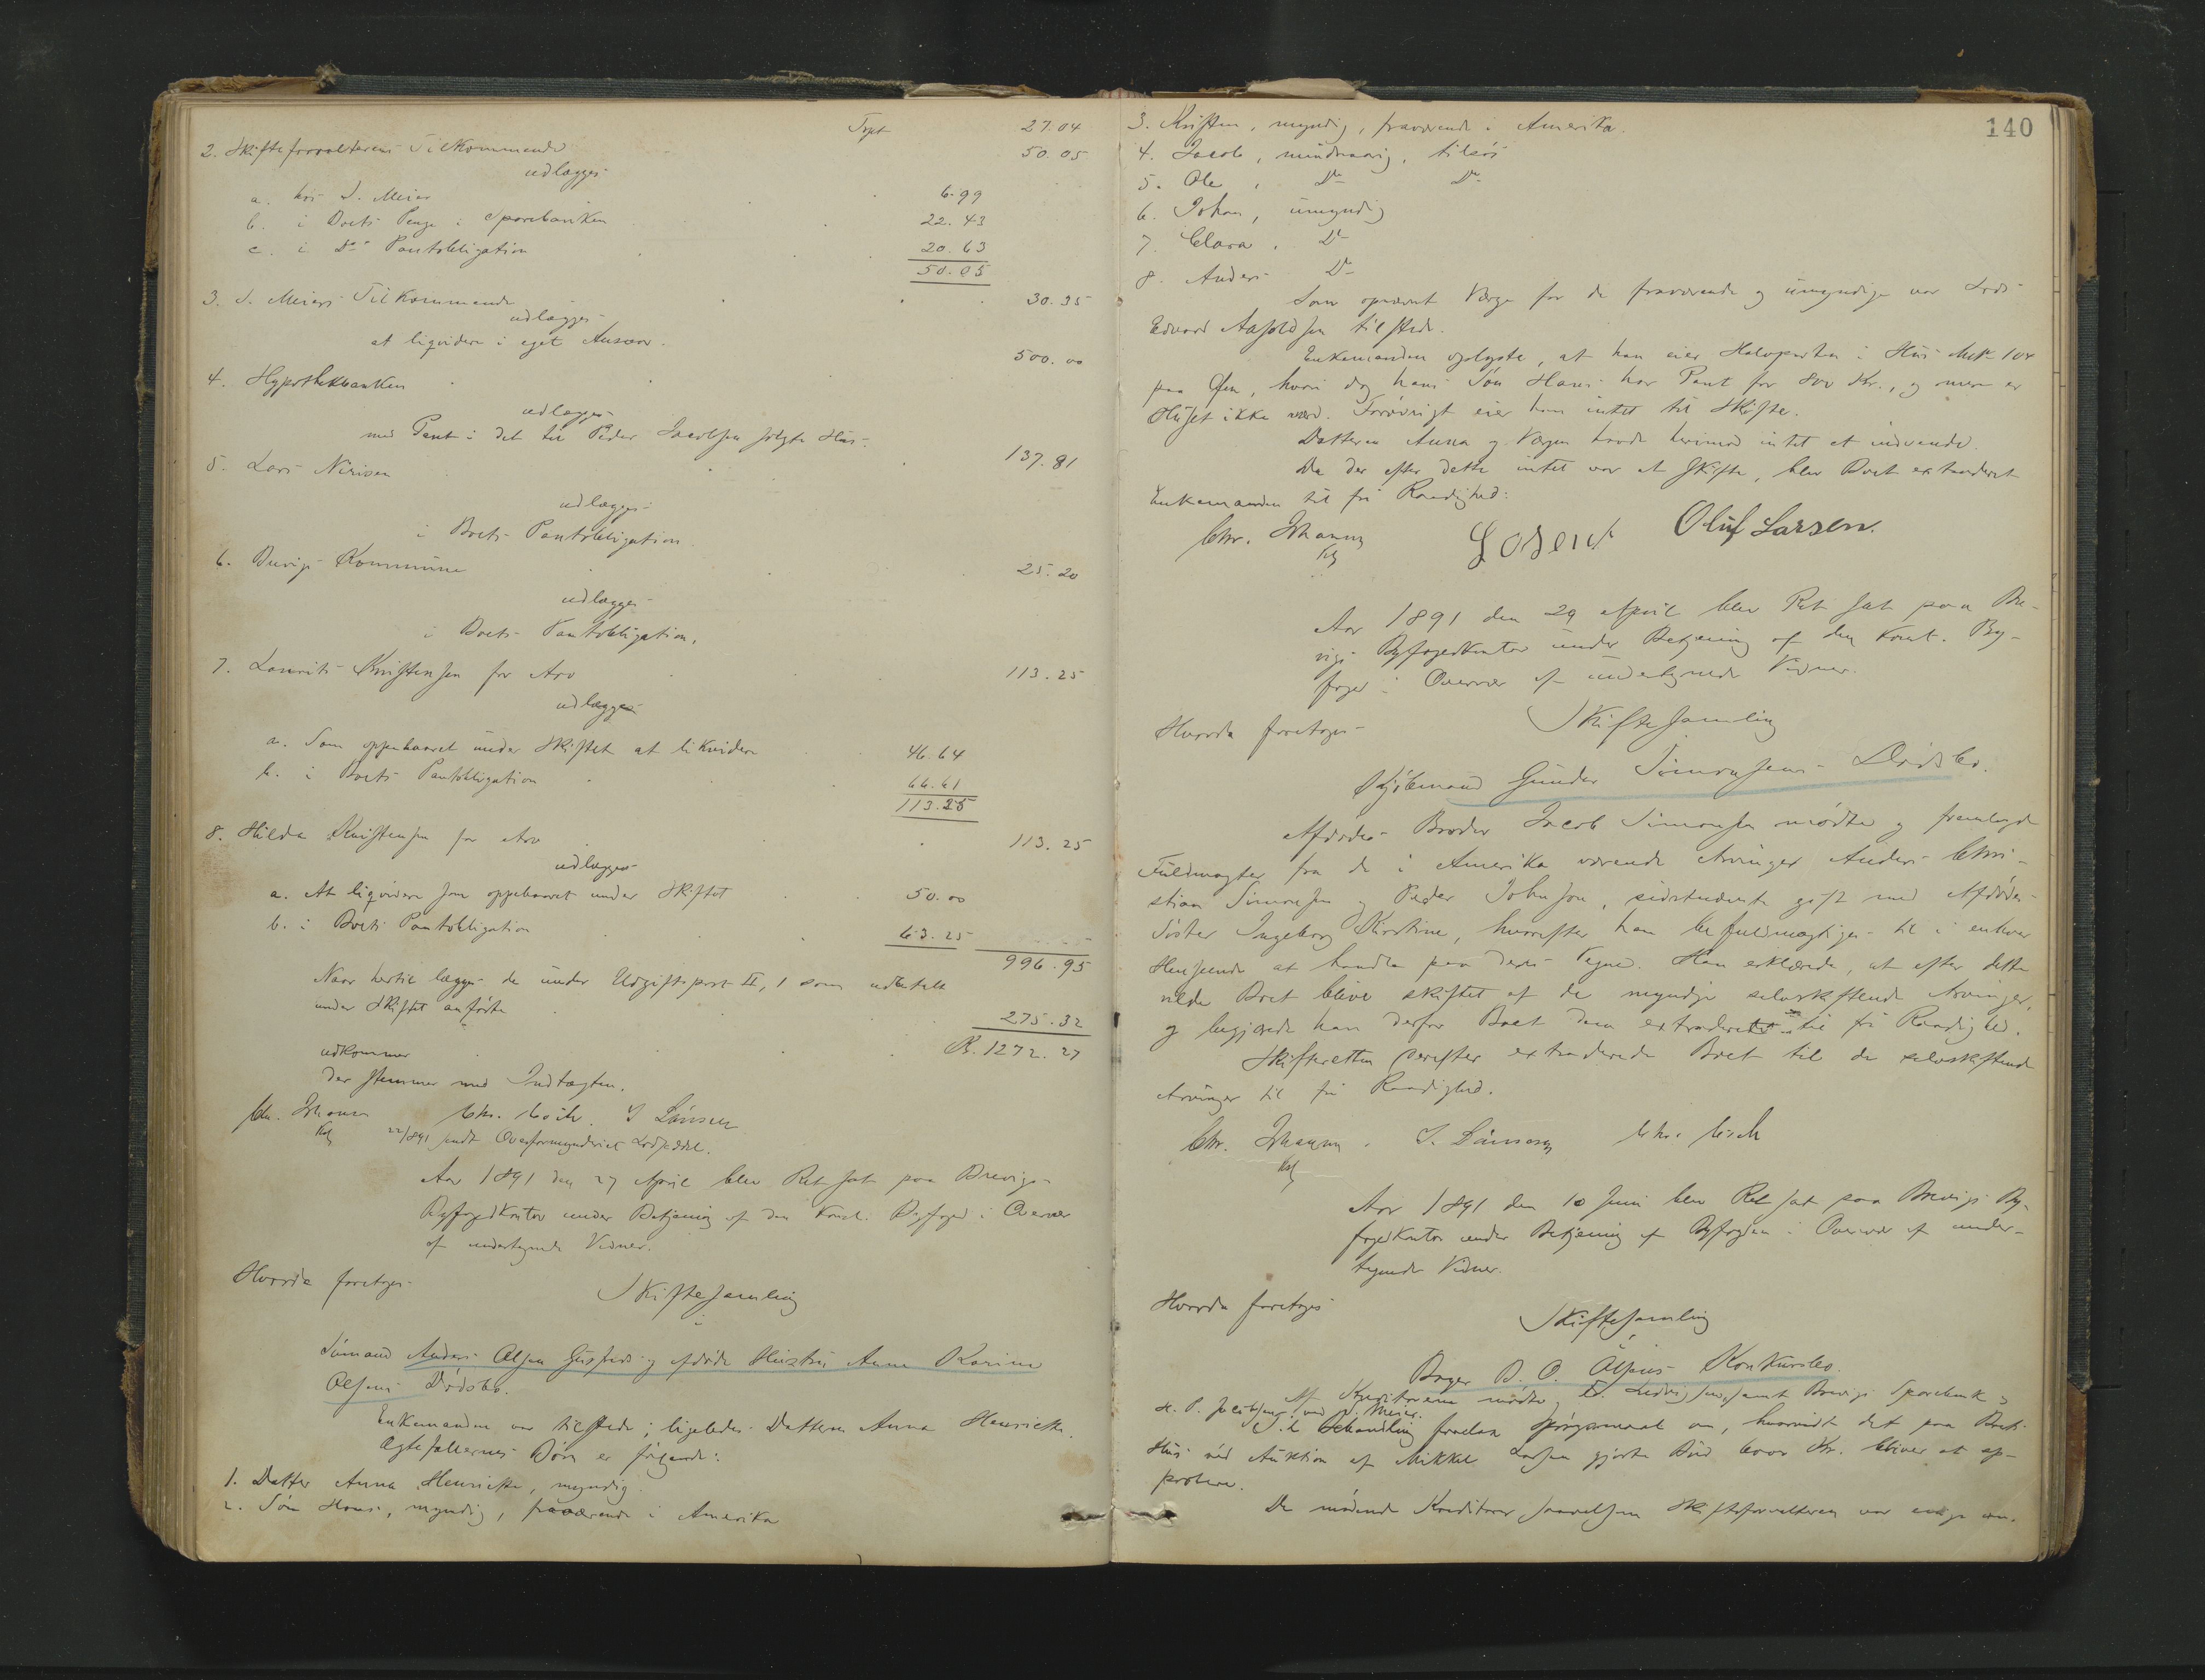 Tspt 27.04
2. Skifteforvalterens Tilkommende 50.05
udlægges
a. hos S. Meier 6.99
b. i Boets Penge i Sparebanken 22.43
c. i Do Pantobligation 20.63
50.05
3. S. Meiers Tilkommende 30.35
udlægges
at liqvidere i eget Ansvar.
4. Hypothekbanken 500.00
udlægges
med Pant i det til Peder Jacobsen solgte Hus.
5. Lars Nirisen 137.81
udlægges
i Boets Pantobligation
6. Brevigs Kommune 25.20
udlægges
i Boets Pantobligation.
7. Laurits Kristensen for Arv 113.25
udlægges
a. Som oppebaaret under Skiftet at likvidere 46.64
b. i Boets Pantobligation 66.61
113.25
8. Hilda Kristensen for Arv 113.25
udlægges
a. At liqvidere som oppebaaret under Skiftet 50.00
b. i Boets Pantobligation 63.25
996.95
Naar hertil lægges de under Udgiftspost II, 1 som udbetalt
under Skiftet anførte 275.32
udkommer Kr. 1272.27
der stemmer med Indtægten.
Chr. Johannsen Chr. S Lønsen
Kst
22/891 sendt Overformynderiet Lodseddel.
Aar 1891 den 27 April blev Ret sat paa Brevigs
Byfogedkontor under Betjening af den Konst. Byfoged i Overvær
af undertegnede Vidner.
Hvorda foretoges
Skiftesamling
i
Sømand Anders Olsen Gusfreds og afdøde Hustru Anne Karine
Olsens Dødsbo.
Enkemanden var tilstede; ligeledes Datteren Anna Henriette.
Ægtefællernes Børn er følgende:
1. Datter Anna Henriette, myndig
2. Søn Hans, myndig, fraværende i Amerika
140
3. Kristen, myndig, fraværende i Amerika.
4. Jacob, mindreaarig, tilsøs
5. Ole, Do Do
6. Johan, umyndig
7. Clara, Do
8. Anders Do
Som opnævnt Værge for de fraværende og umyndige var Lods
Edvard Aasoldsen tilstede.
Enkemanden oplyste, at han eier Halvparten i Hus Mtr. 104
paa Øen, hvori dog hans Søn Hans har Pant for 800 Kr., og mere er
Huset ikke værd. Forøvrigt eier han intet til Skifte.
Datteren Anna og Værgen havde herimod intet at indvende.
Da der efter dette intet var at skifte, blev Boet extraderet
Enkemanden til fri Raadighed:
Chr. Johannsen Oluf Larsen.
Kst
Aar 1891 den 29 April blev Ret sat paa Bre-
vigs Byfogedkontor under Betjening af den Konst. By-
foged i Overvær af undertegnede Vidner.
Hvorda foretoges
Skiftesamling
Kjøbmand Gunder Simonsens Dødsbo.
Afdødes Broder Jacob Simonsen mødte og fremlagde
Fuldmagter fra de i Amerika værende Arvinger Anders Chri-
stian Simonsen og Peder Johnson, sidstnævnte gift med Afdødes
Søster Ingeborg Kirstine, hvorefter han befuldmægtiges til i enhver
Henseende at handle paa deres Vegne. Han erklærede, at efter dette
vilde Boet blive skiftet af de myndige selvskiftende Arvinger,
og begjærede han derfor Boet dem extraderet til fri Raadighed.
Skifteretten derefter extraderede Boet til de selvskiftende
Arvinger til fri Raadighed.
Chr. Johannsen. S. Lønsen
Kst
Aar 1891 den 10 Juni blev Ret sat paa Brevigs By-
fogedkontor under Betjening af Byfogden i Overvær af under-
tegnede Vidner.
Hvorda foretoges
Skiftesamling
i
Bager B. O. Olsens Konkursbo.
Af Kreditorerne mødte Ed. Ludvigsen, samt Brevigs Sparebank,
H. P. Jacobsen, ved S. Meier.
Til Behandling forelaa Spørgsmaal om, hvorvidt det paa Boets
Hus ved Auktion af Mikkel Larsen gjorte Bud 6000 Kr. bliver at ap-
probere.
De mødende Kreditorer saavelsom Skifteforvalteren var enige om.